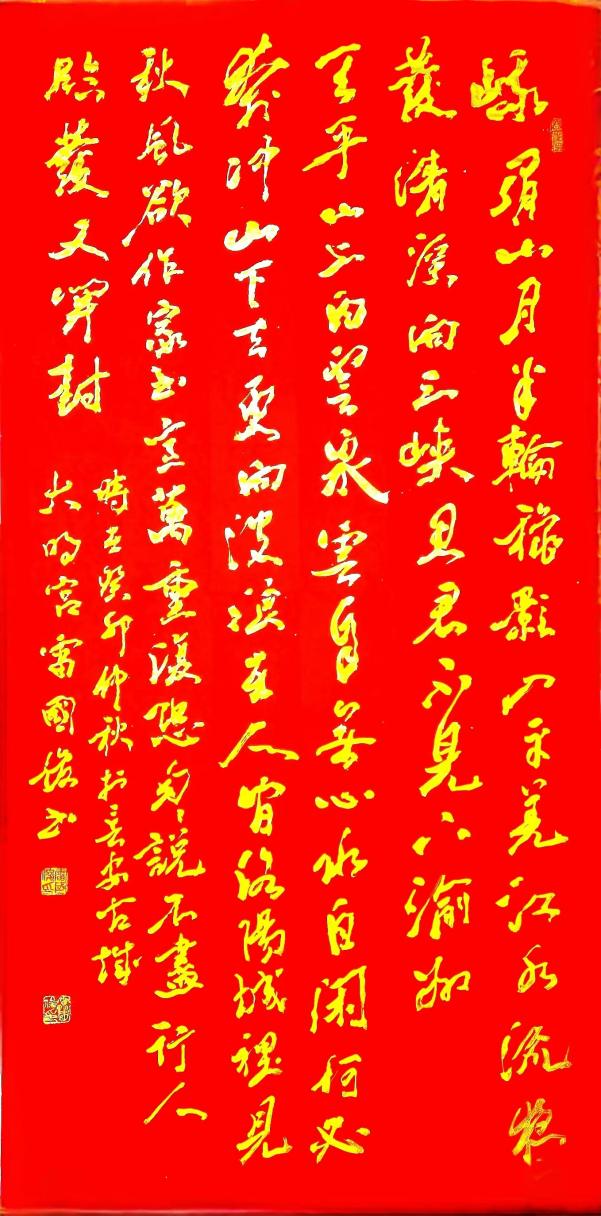 峨眉山月半輪穐影入平羌江水流夜
發清溪向三峽思君不見下渝州
天平山上白雲泉雲自無心水自閑何必
奔冲山下去更向波浪在人間洛陽城裡見
秋風欲作家書意萬重復恐匆々說不盡行人
臨發又開封
時在癸卯仲秋於長安古城
大明宮雷國俊書